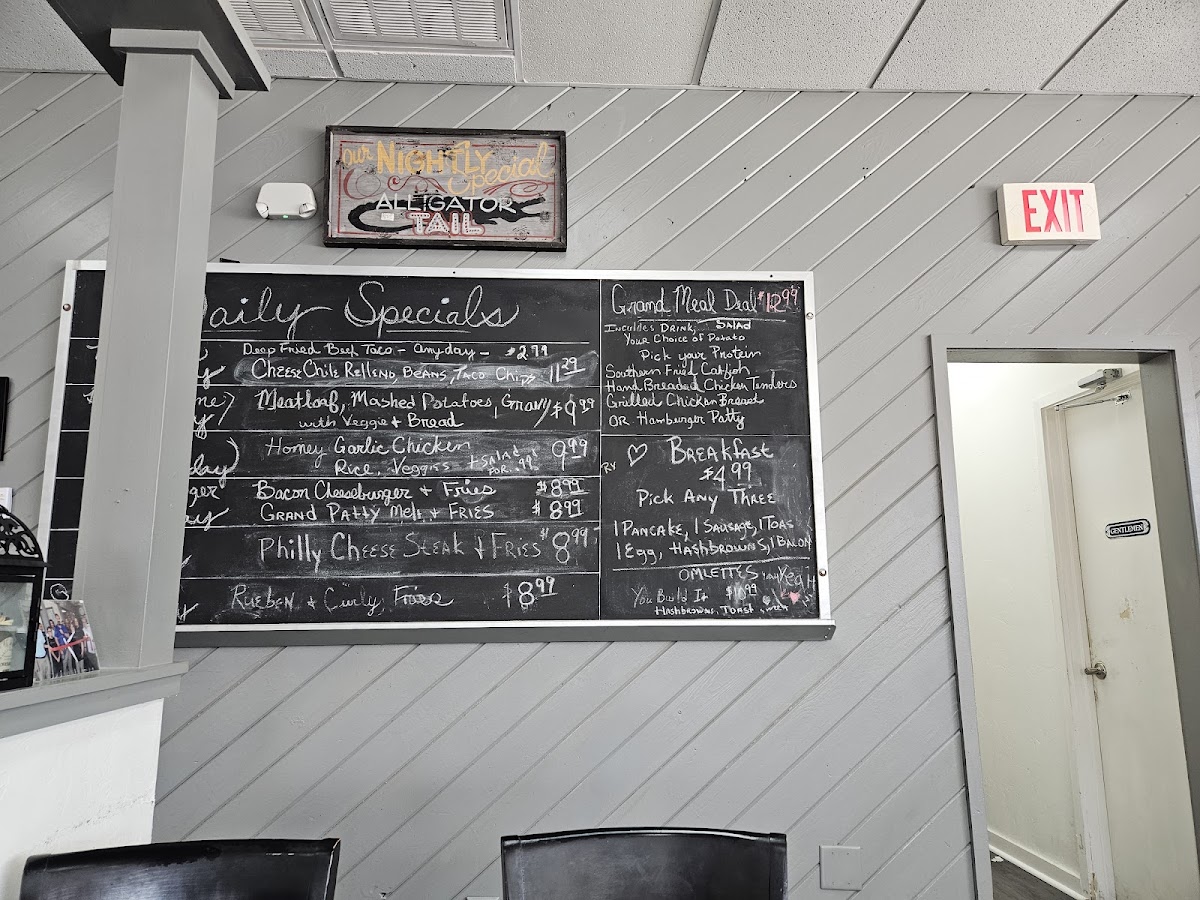 Our NIGHTLY Special
ALLIGATOR
TAIL
EXIT
aily Specials
Deep Fried Beef Taco - Anyday - $2.99
Cheese Chile Relleno, Beans, Taco Chips 11.99
Meatloaf, Mashed Potatoes, Gravy $9.99
with Veggie + Bread
Honey Garlic Chicken 9.99
Rice, Veggies + Salad
For .99
day)
ger
Bacon Cheeseburger + Fries $8.99
Grand Patty Melt + Fries $8.99
Philly Cheese Steak + Fries $8.99
Rueben + Curly Fries $8.99
Grand Meal Deal $12.99
Inculdes Drink, Salad
Your Choice of Potato
Pick your Protein
Southern Fried Catfish
Hand Breaded Chicken Tenders
Grilled Chicken Breast
OR Hamburger Patty
RV ♡ Breakfast
$4.99
Pick Any Three
1 Pancake, 1 Sausage, 1 Toas
1 Egg, Hashbrowns, 1 Bacon
OMLETTES
You Build It
Hashbrowns, Toast
GENTLEMEN